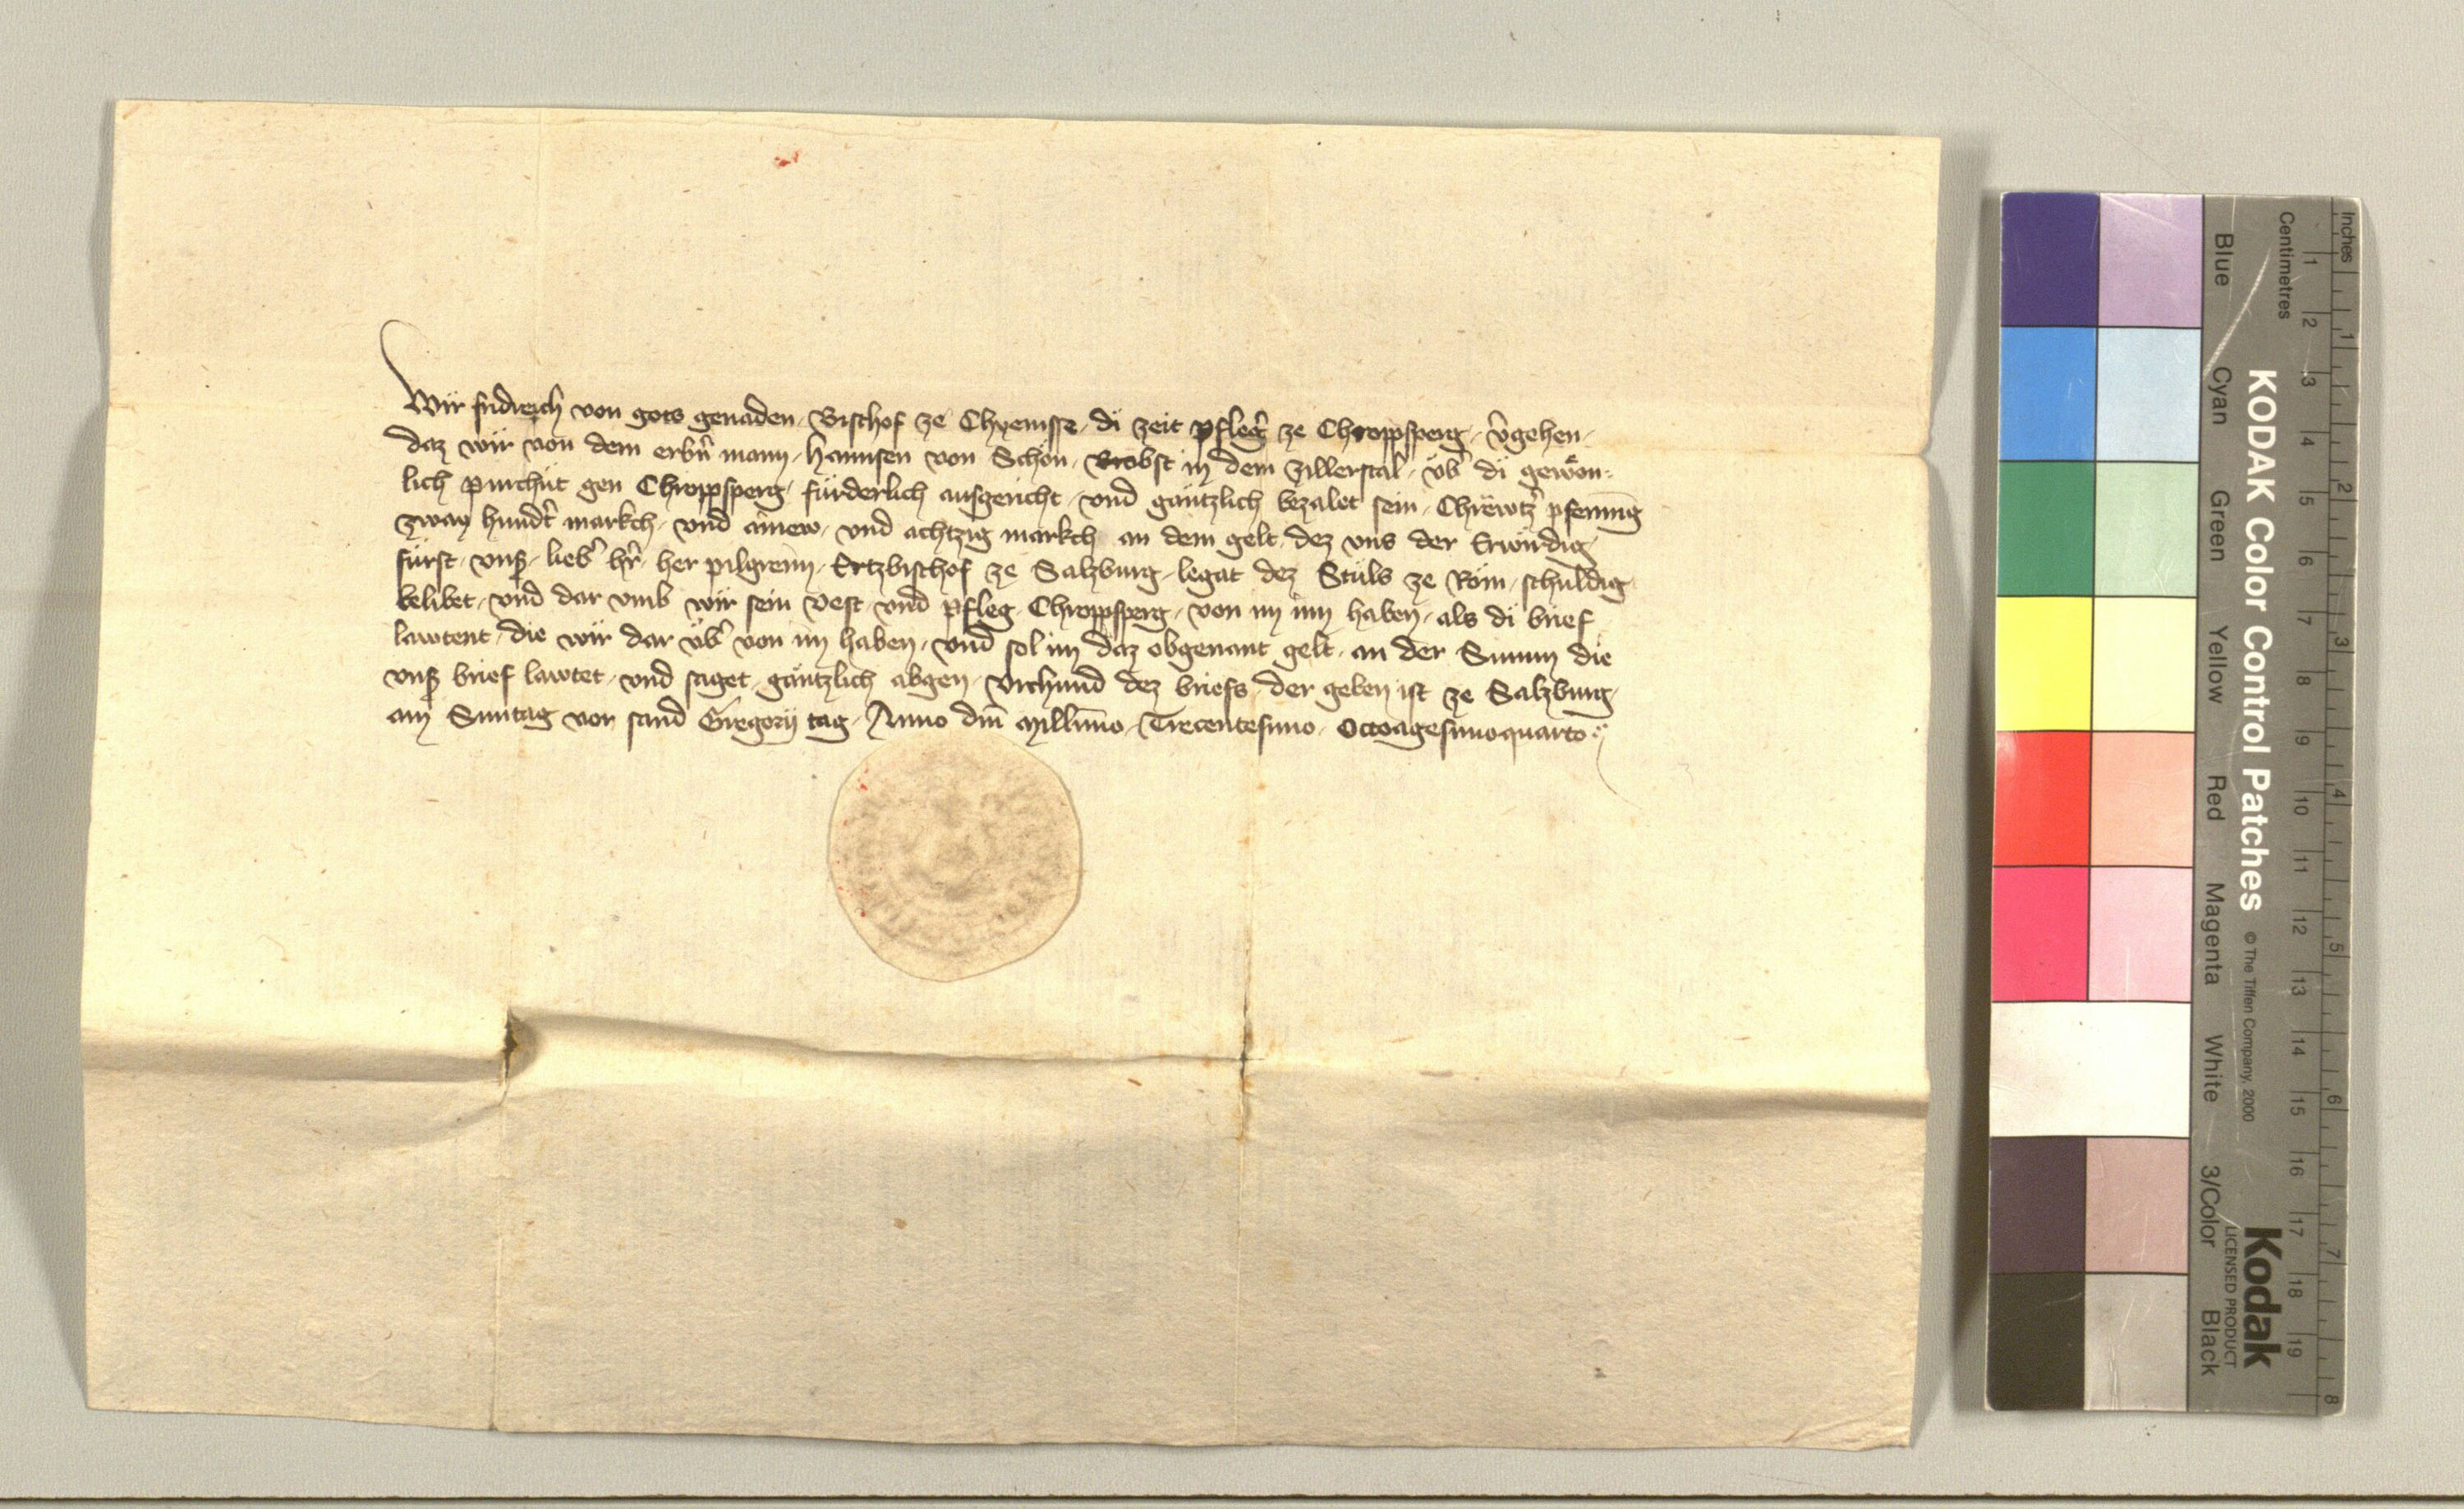 Wir fridreich von gots genaden, Bischof ze Chyemsse, di zeit pfleg̃ ze Chropfsperg, v̄gehen,
daz wir von dem erbn̄ mann, Hannsen von Schon, Brobst in dem Zillerstal, vͤb̾ di gewoͤn⸗
lich purchůt gen Chropfsperg, fuͤrderlich ausgericht, vnd gaͤntzlich bezalet sein, Chrewtz̾ pfenni̅g
zway hundt̾ markch, vnd ainew, vnd achtzig markch an dem gelt, dez vns der Erwirdig
fuͤrst, vnß, lieb̾ hr̄, her pilgreim, Ertzbischof ze Salzburg, legat dez Stuͤls ze Rom, schuldig
belibet, vnd dar vmb wir sein vest vnd pfleg Chropfsperg, von im inn haben, als di brief
lawtent, die wir dar vͤb̾ von im haben, vnd sol im daz obgenant gelt, an der Summ die
vnß brief lawtet, vnd saget, gaͤntzlich abgen, Vrchund dez briefs, der geben ist ze Salzburg,
am Suntag vor sand Gregorij tag, Anno dn̄i Mill̄imo, Trecentesimo, Octoagesimoquarto
Inches
Centimetres
1 2 3 4 5 6 7 8
1 2 3 4 5 6 7 8 9 10 11 12 13 14 15 16 17 18 19
KODAK Color Control Patches
© The Tiffen Company, 2000
Kodak
LICENSED PRODUCT
Blue Cyan Green Yellow Red Magenta White 3/Color Black